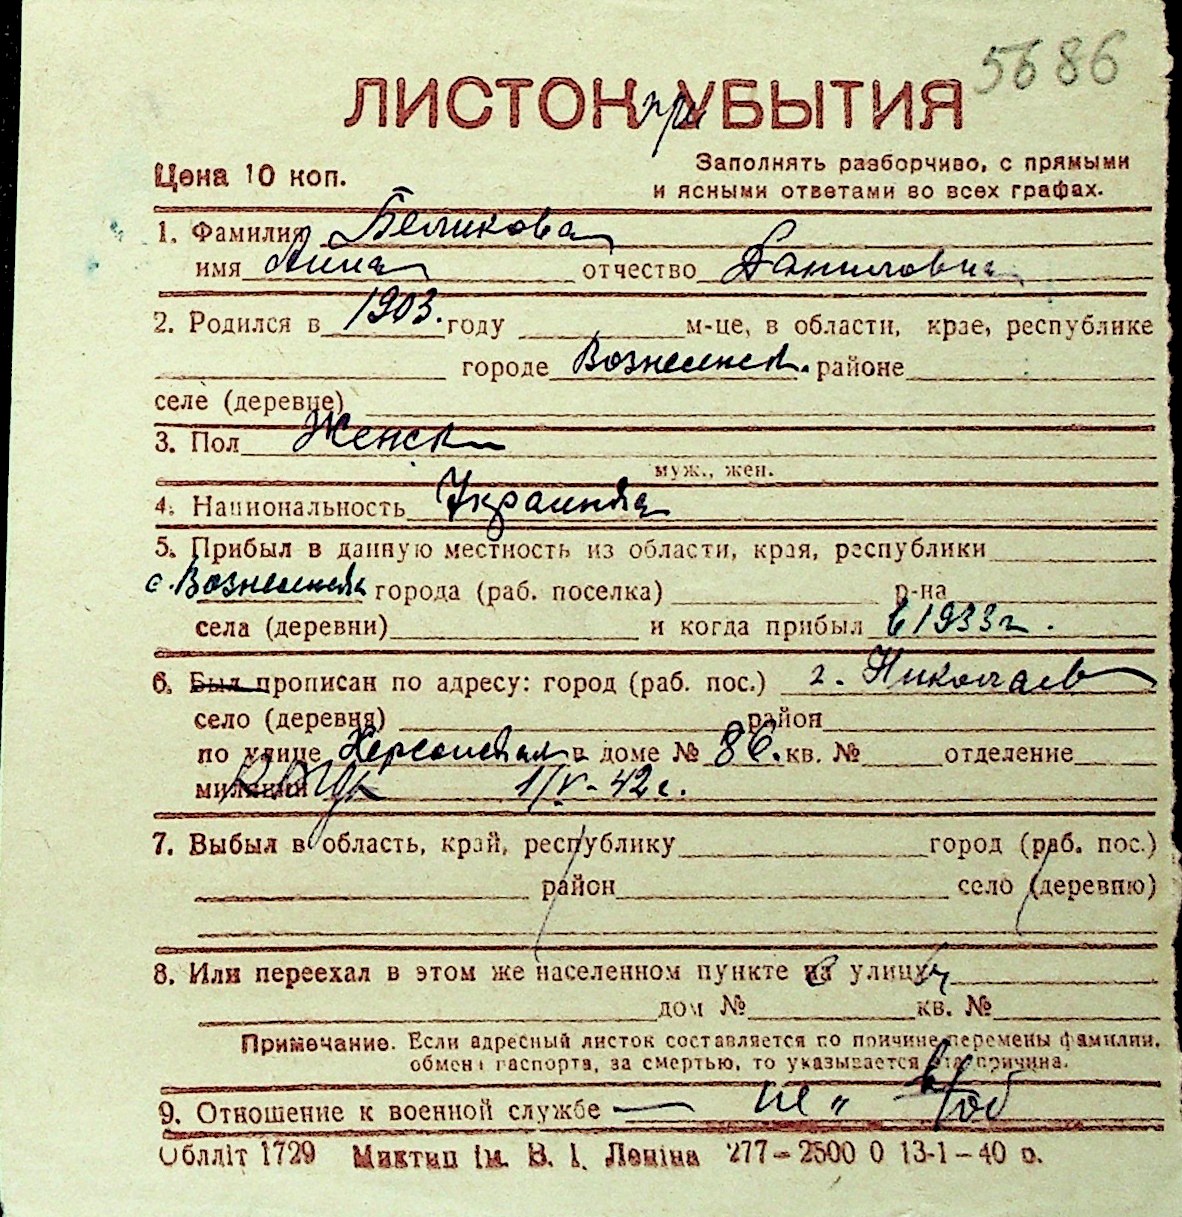 5686
ЛИСТОК при УБЫТИЯ
Цена 10 коп.
Заполнять разборчиво, с прямыми
и ясными ответами во всех графах.
1. Фамилия Беликова
имя Анна отчество Даниловна
2. Родился в 1903. году м-це, в области, крае, республике
городе Вознесенск. районе
селе (деревне)
3. Пол Женск
муж., жен.
4. Национальность Украинка
5. Прибыл в данную местность из области, края, республики
с. Вознесенска города (раб. поселка) р-на
села (деревни) и когда прибыл в 1933 г.
6. Был прописан по адресу: город (раб. пос.) г. Николаев
село (деревня) район
по улице Херсонская в доме № 86. кв. № отделение
милиции 1/V-42 г.
7. Выбыл в область, край, республику город (раб. пос.)
район село (деревню)
8. Или переехал в этом же населенном пункте на улицу
дом № кв. №
Примечание. Если адресный листок составляется по причине перемены фамилии,
обмена паспорта, за смертью, то указывается эта причина.
9. Отношение к военной службе —
Облліт 1729 Миктип ім. В. І. Леніна 277-2500 0 13-1-40 р.